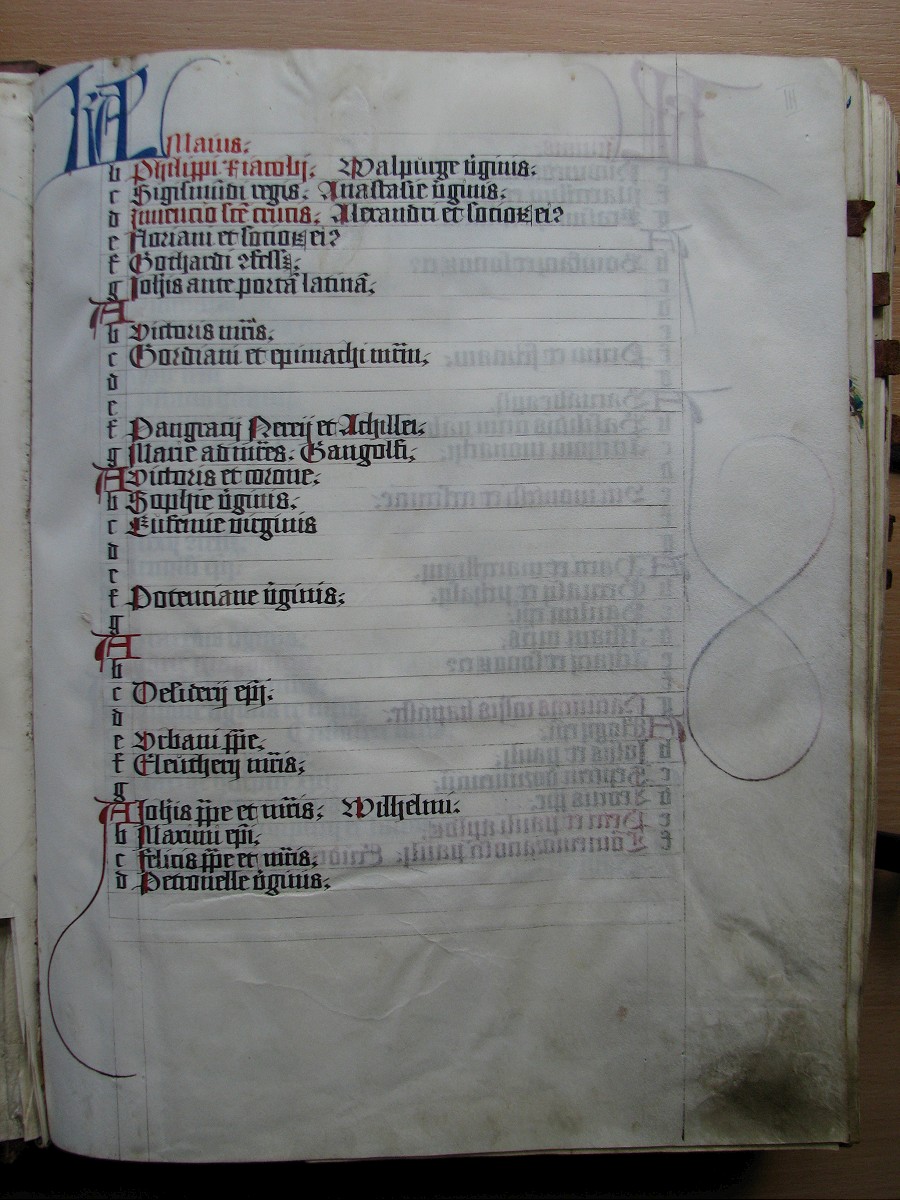 KL
Maius.
b Philippi et iacobi. Walpurge v̄ginis.
c Sigismūdi regis. Anastasie v̄ginis.
d Inuencio scē crucis. Alexandri et socioꝝ ei⁹
e Floriani et socioꝝ ei⁹
f Gothardi ꝯfess̄.
g Ioh̄is ante portā latinā.
A
b Victoris mr̄is.
c Gordiani et epimachi mr̄m.
d
e
f Pangracij Nerei et Achillei.
g Marie ad mr̄es. Gangolfi.
A Victoris et corone.
b Sophie v̄ginis.
c Eufemie virginis
d
e
f Potenciane v̄ginis.
g
A
b
c Desiderij ep̄i.
d
e Vrbani p̄pe.
f Eleutherij mr̄is.
g
A Ioh̄is p̄pe et mr̄is. Wilhelmi.
b Maximi ep̄i.
c Felicis p̄pe et mr̄is.
d Petronelle v̄ginis.